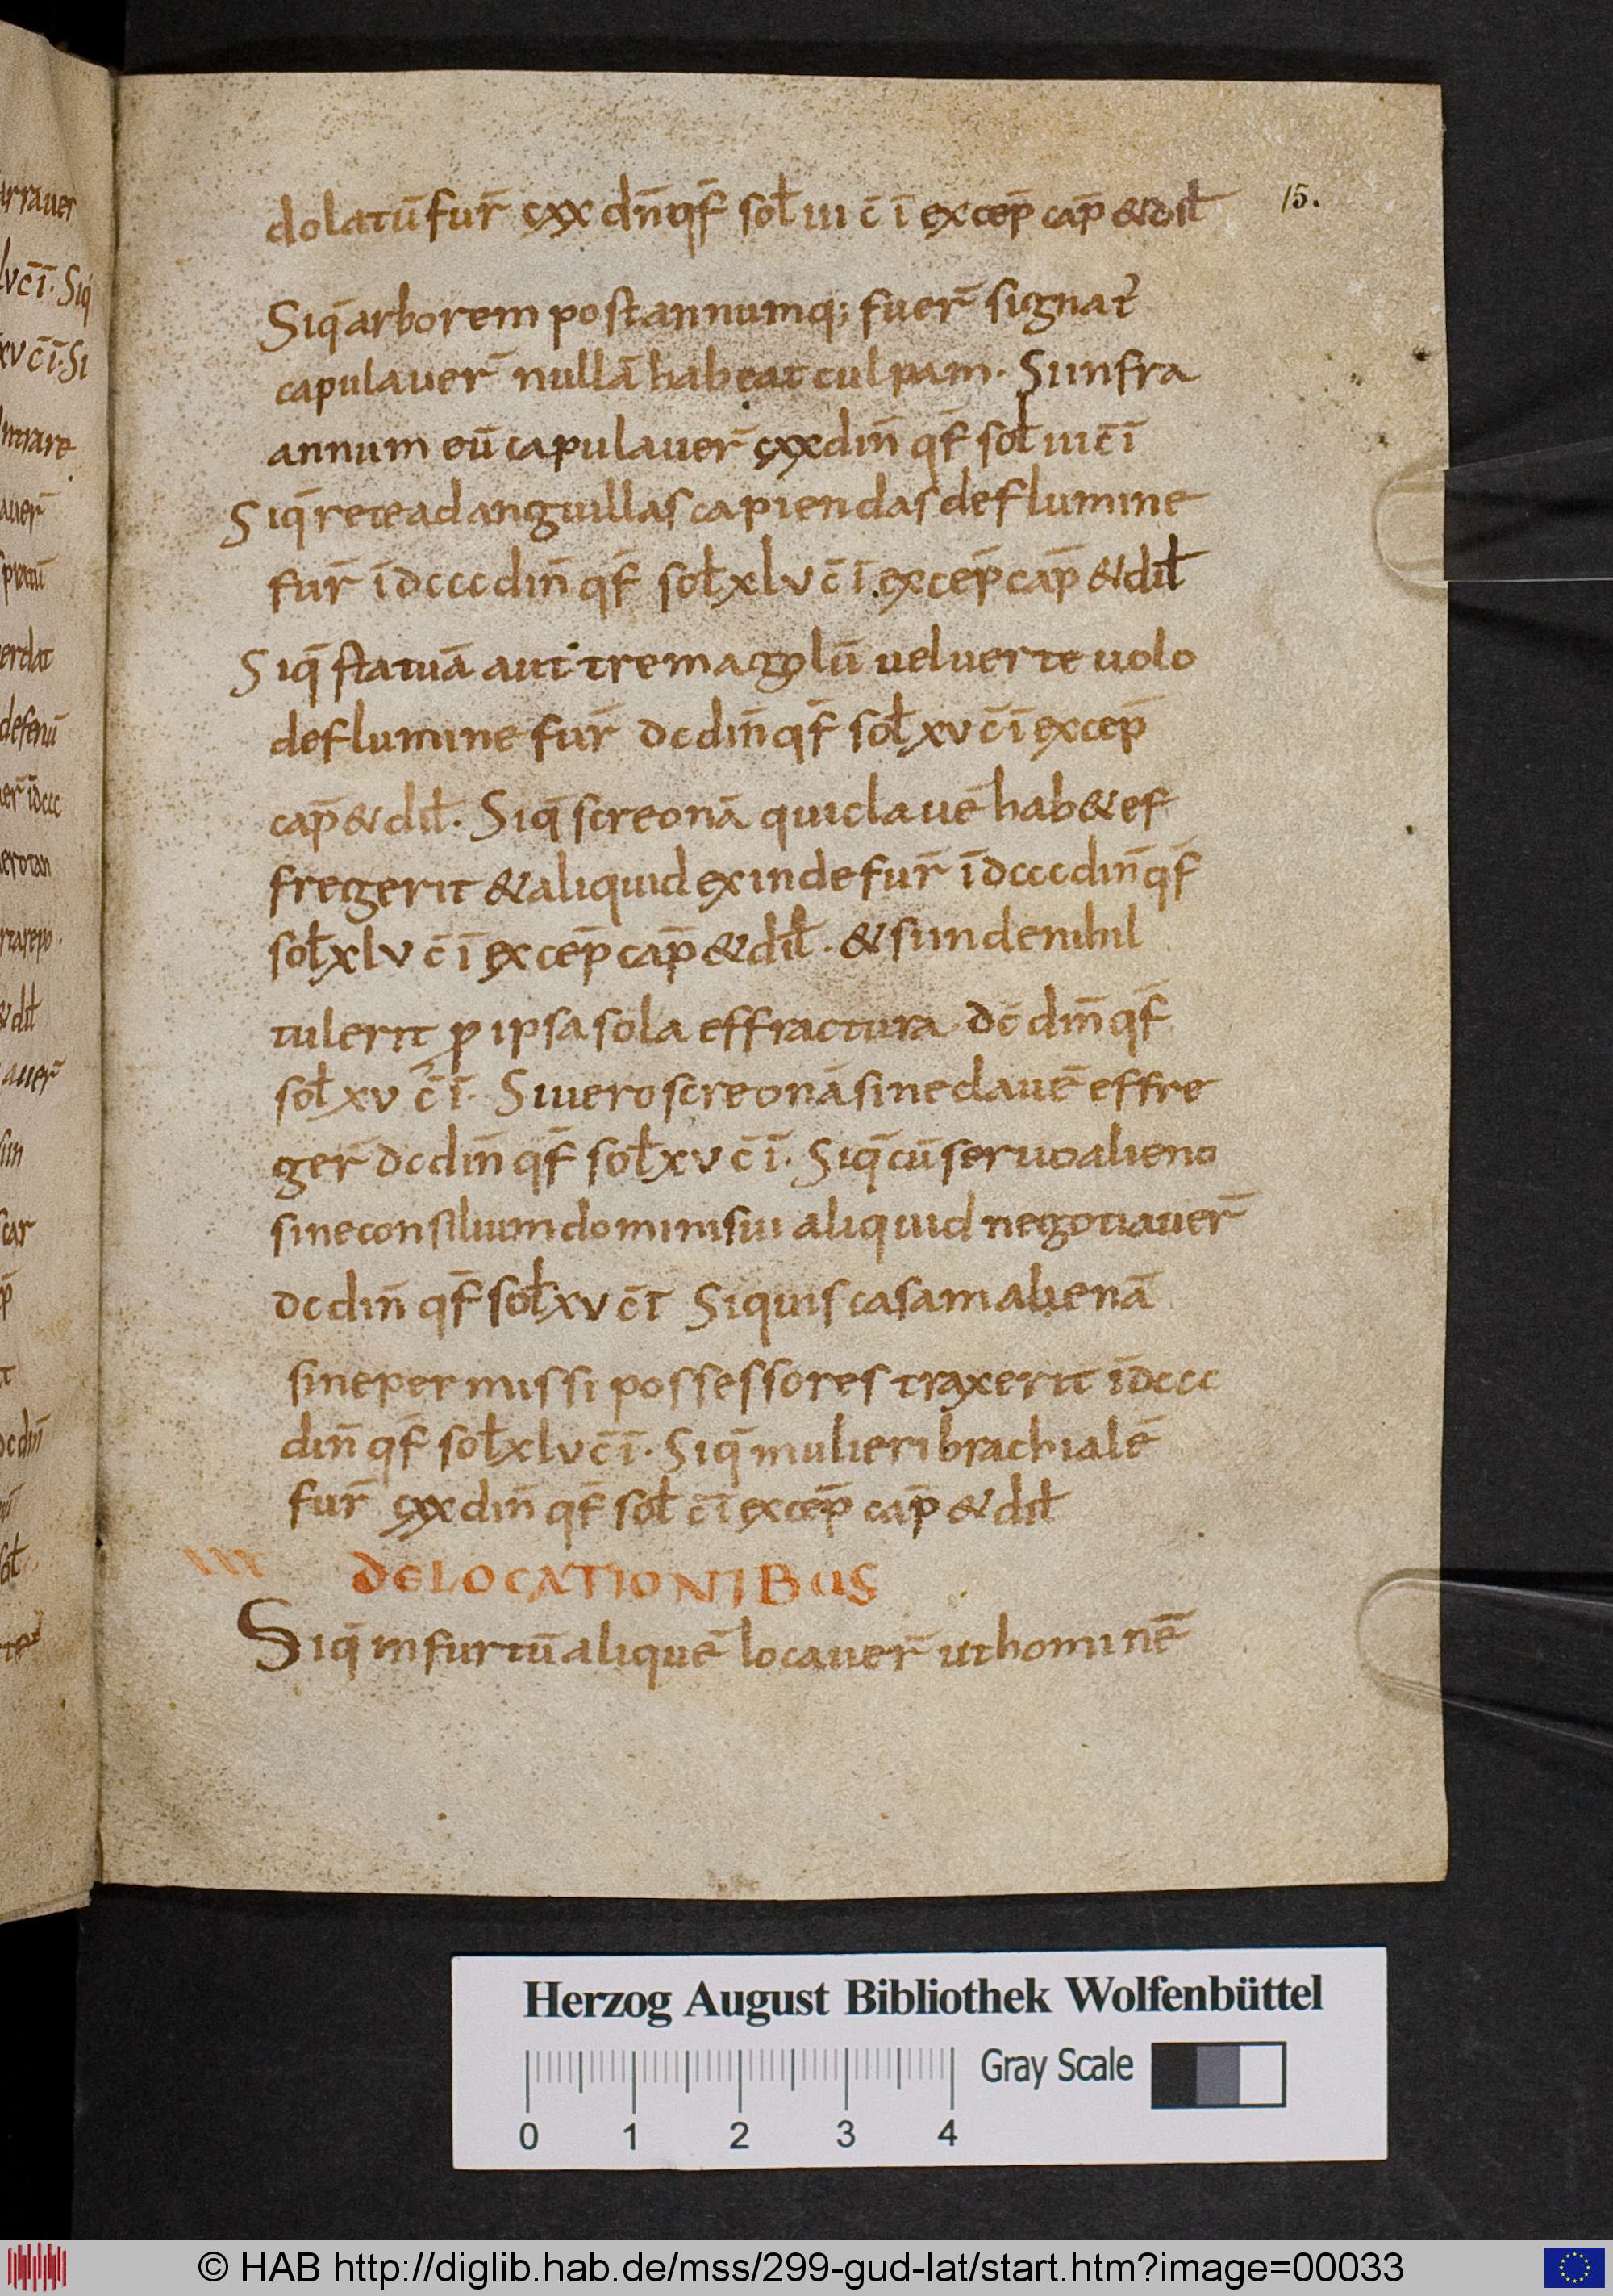 15.
dolatū fur̄ cxx dn̄ qf̄ sol̄ iii c̄ ī excep̄ cap̄ & dil̄
Siq̄ arborem post annumq; fuer̄ signat̄
capulauer̄ nullā habeat culpam. Si infra
annum eū capulauer̄ cxx din̄ qf̄ sol̄ iii c̄ ī
Siq̄ rete ad anguillas capiendas de flumine
fur̄ īdccc din̄ qf̄ sol̄ xlv c̄ ī. excep̄ cap̄ & dil̄
Siq̄ statuā aut tremagolū uel uerteuolo
de flumine fur̄ dc din̄ qf̄ sol̄ xv c̄ ī excep̄
cap̄ & dil̄. Siq̄ screonā qui clauē hab& ef
fregerit & aliquid exinde fur̄ īdccc din̄ qf̄
sol̄ xlv c̄ ī excep̄ cap̄ & dil̄. & si inde nihil
tulerit ꝓ ipsa sola effractura dc̄ din̄ qf̄
sol̄ xv c̄ ī. Si uero screonā sine clauē effre
ger̄ dc din̄ qf̄ sol̄ xv c̄ ī. Siq̄ cū seruo alieno
sine consilium domini sui aliquid negotiauer̄
dc din̄ qf̄ sol̄ xv c̄ ī Siquis casam alienā
sine permissi possessores traxerit īdccc
din̄ qf̄ sol̄ xlv c̄ ī. Siq̄ mulieri brachialē
fur̄ cxx din̄ qf̄ sol̄ c̄ ī excep̄ cap̄ & dil̄
DE LOCATIONIBUS
Siq̄ in furtū aliquē locauer̄ ut hominē
Herzog August Bibliothek Wolfenbüttel
Gray Scale
0 1 2 3 4
© HAB http://diglib.hab.de/mss/299-gud-lat/start.htm?image=00033